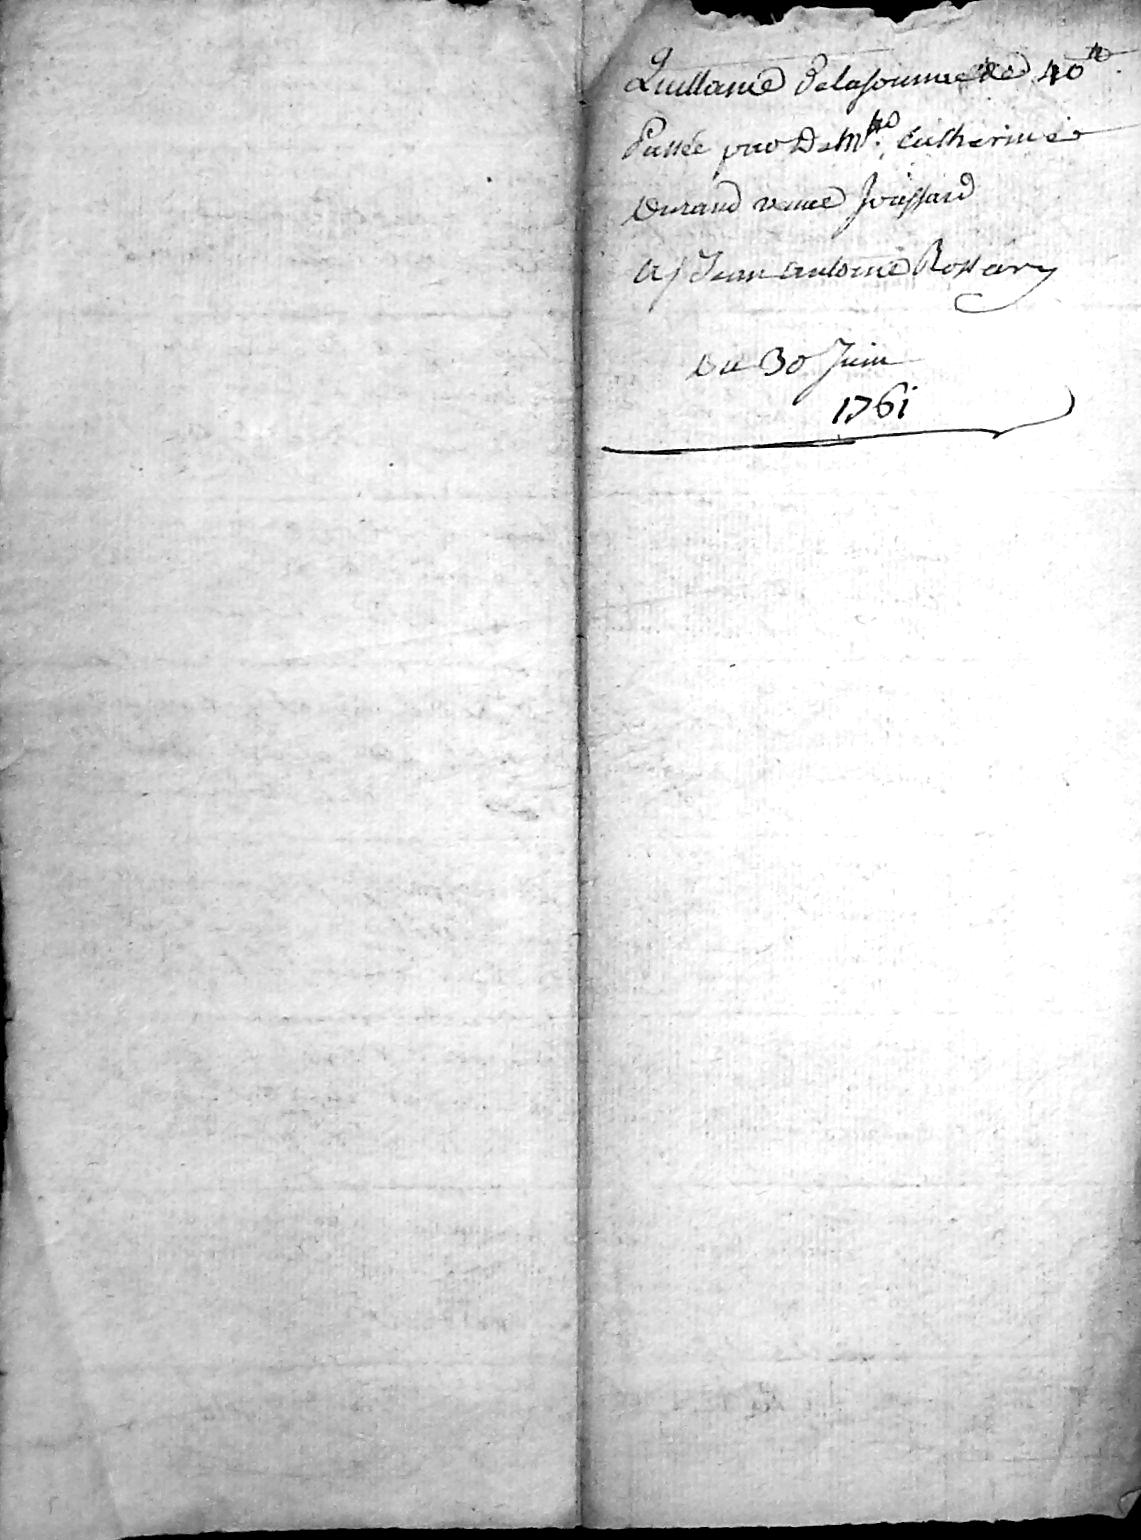 Quittance de la somme de 40 ₶
Passée par De Mlle Catherine
Durand veuve Joussard
A Sr Jean Antoine Rostary
Du 30 Juin
1761